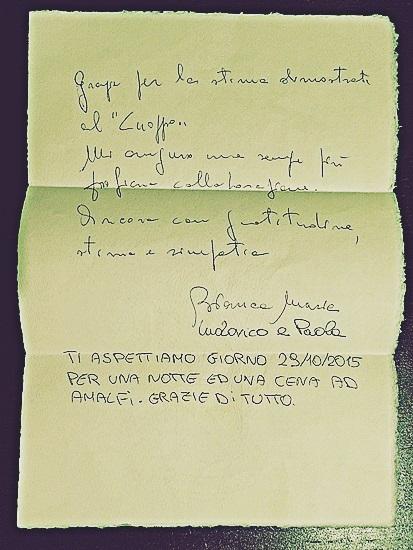 Grazie per la stima dimostrata
al "Cuoppo"
Mi auguro una sempre più
proficua collaborazione.
Ancora con gratitudine,
stima e simpatia
Bianca Maria
Ludovico e Paola
TI ASPETTIAMO GIORNO 29/10/2015
PER UNA NOTTE ED UNA CENA AD
AMALFI. GRAZIE DI TUTTO.